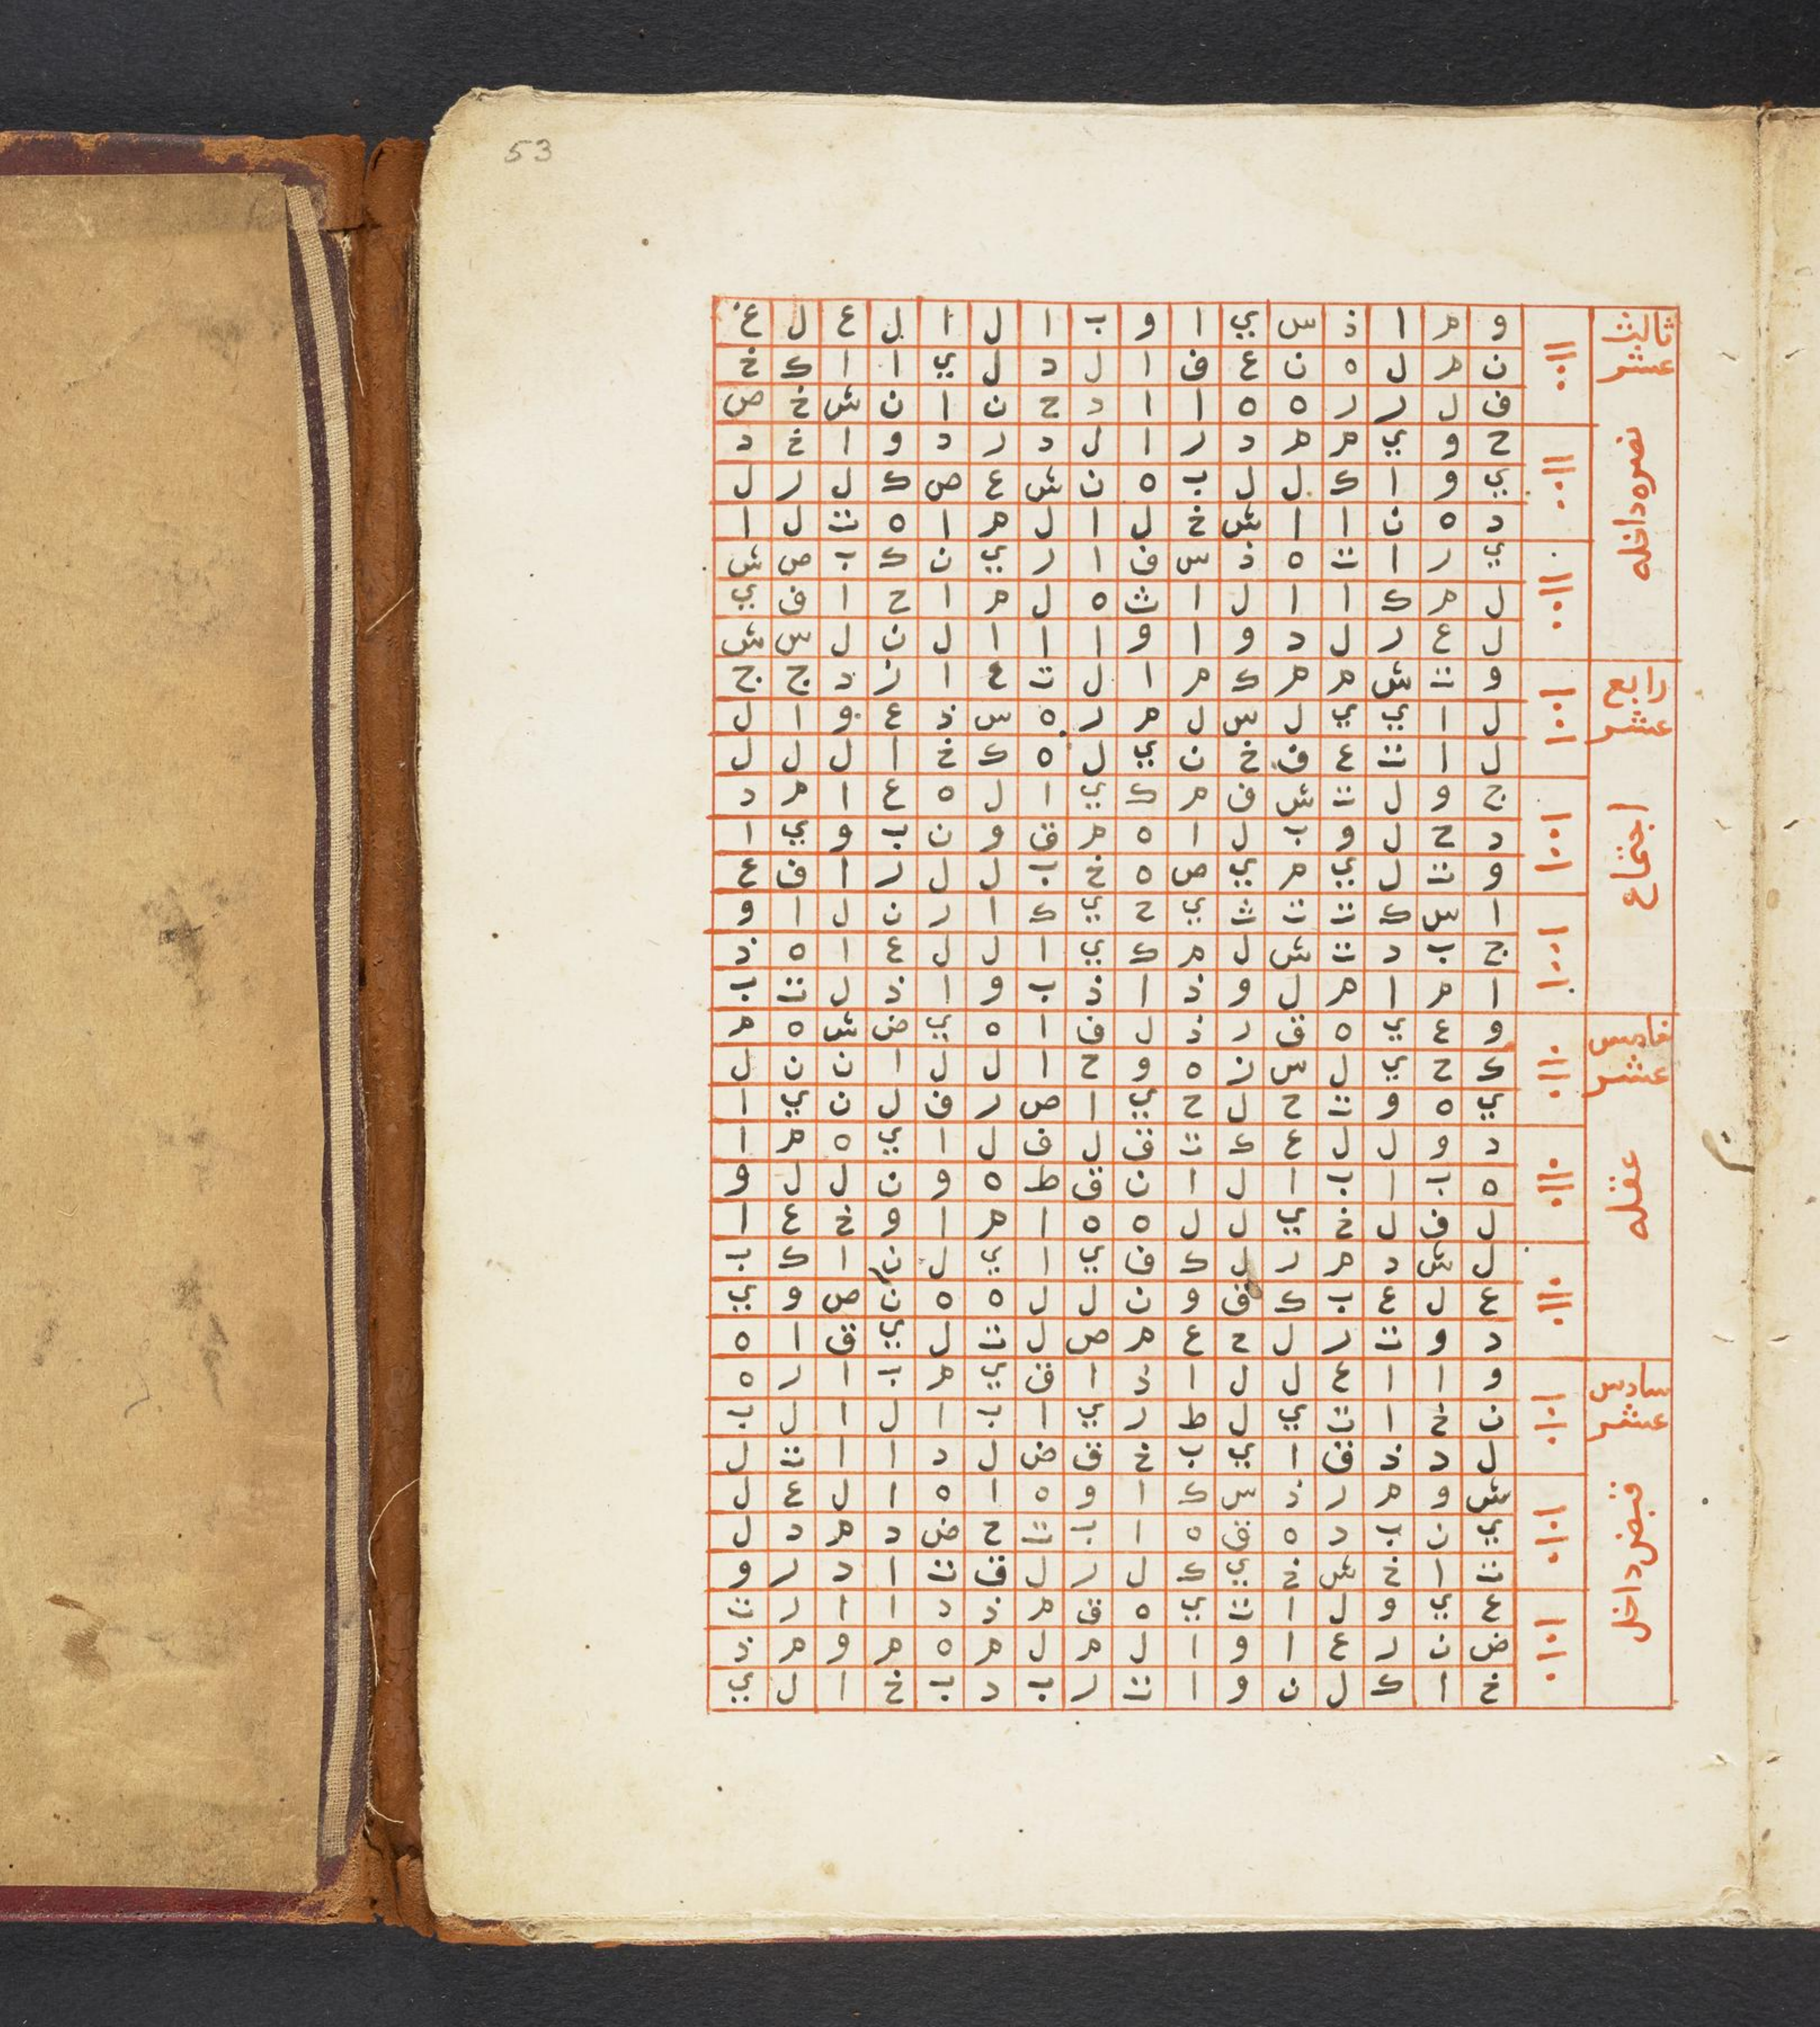 53
ثالث عشر
نصره داخله
و م ا ذ س ي ا و ب ا ل ا ل ع ل غ
ن م ل ه ن ع ف ا ل د ل ي ا ا ك خ
ف ل ر ر ه ه ا ا د ح ن ا ن ش خ ص
ح و ي م م د ر ا ل د ر د و ا خ د
ي و ا ك ل ل ب ه ن ش ع ص ك ل ر ل
د ه ن ا ا ش خ ل ا ل م ا ه ت ل ا
ي ر ا ت ه ذ س ف ا ر ي ن ك ب ص ش
ل م ك ا ا ل ا ث ه ل م ا ح ا ف ي
ل ع ر ل د و ا و ا ا ا ل ن ل س ش
رابع عشر
اجتماع
و ت ش م م ك م ا ل ت ع ا ز د ج ج
ل ا ي ي ل س ل م ر ه س ذ ع و ا ل
ل ا ت ع ف خ ن ي ل ه ك خ ا ل ل ل
ج و ل ت ش ف م ك ي ا ل ه ع ا م د
د ح ل و ب ل ا ه م ق و ن ب و ي ا
و ت ل ي م ي ص ه خ ب ل ل ر ا ف ع
ا س ك ت ت ث ي ح ي ك ا ر ن ل ا و
ج ب د ت ش ل م ك ي ا ل ل ع ا ه ذ
ا م ا م ل و ذ ا ذ ب و ا ذ ل ت ب
خامس عشر
عقله
و ع ي ه ق ر ذ ل ف ا ه ي ض ش ه م
ك ح ي ل س ز ه و ح ا ل ل ا ن ن ل
ي ه و ت ح ل ح ي ا ص ر ف ل ن ي ا
د و ل ل ع ك ت ق ل ف ل ا ي ه م ا
ه ب ا ب ا ل ا ن ق ط ه و ن ل ل و
ل ف ل خ ي ل ل ه ه ا م ا و خ ع ا
ل ش د م ر ل ك ف ي ا ي ل ن ا ك ب
ع ل ع ب ك ق و ن ل ل ه ه ن ص و ي
د و ت ر ل ح ع م ص ل ت ل ي ق ا ه
سادس عشر
قبض داخل
و ا ا ع ل ل ا ذ ا ق ي م ب ا ر ه
ن خ ا ت ي ل ط ر ي ا ب ا ل ا ل ب
ل د ذ ق ا ي ب خ ق ض ل د ا ا ت ل
ش و م ر ذ س ك ا و ه ا ه ا ل ع ل
ي ن ب د ه ق ه ا ب ت ح ض د م د ل
ت ا خ ش خ ي ك ل ر ل ق ت ا د ر و
ع ي و ل ا ت ي ه ق م ذ د ا ا ر ت
ض ن ر ع ا و ا ل م ل م ه م و م ذ
خ ا ك ل ن و ا ت ر ب د ب خ ا ل ي